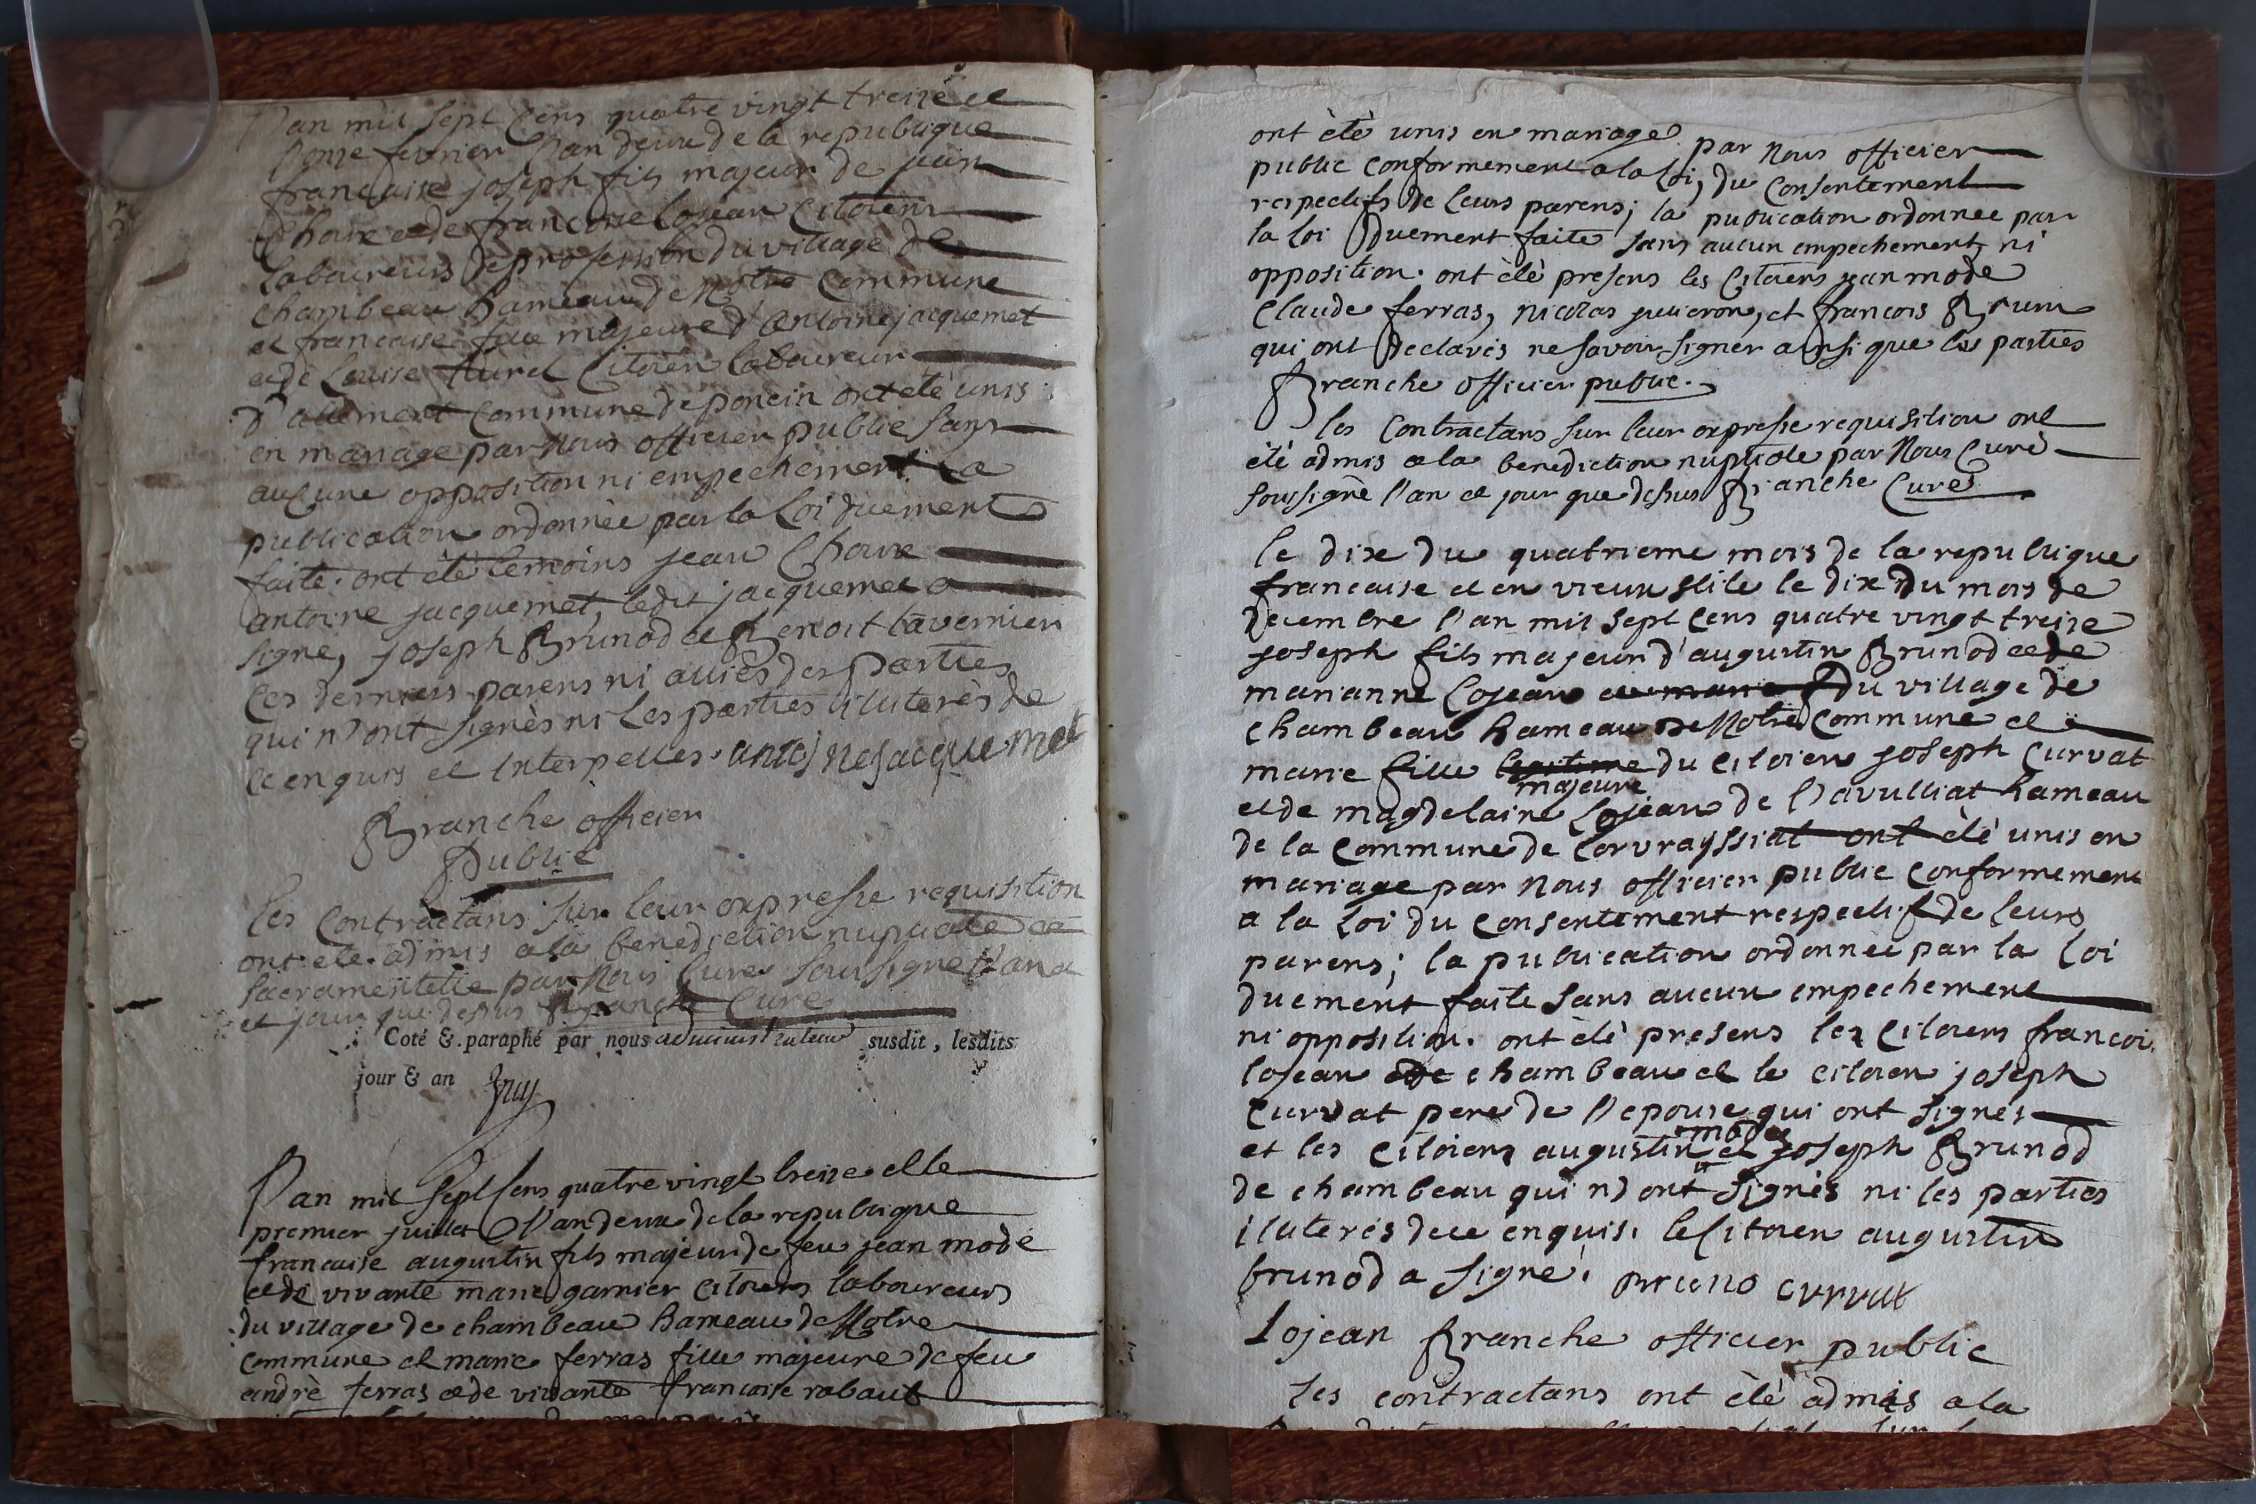 L'an mil sept cens quatre vingt treize et
l'onze fevrier l'an deux de la republique
francaise joseph fils majeur de jean
Choux et de francoise Lojean Citoiens
laboureurs de profession du village de
chambeau hameau de Notre Commune
et francoise fille majeure d'antoine jacquemet
et de Louise Citoien laboureur
d'allement Commune de poncin ont été unis
en mariage par Nous officier public sans
aucune opposition ni empechement La
publication ordonnée par la Loi duement
faite. ont été temoins jean Choux
antoine jacquemet, ledit jacquemet a
signe, joseph Brunod et Benoit tavernier
ces derniers parens ni alliés des parties
qui n'ont signès ni Les parties illiterès de
ce enquis et interpelles. antoinejacquemet
Branche officier
public
les contractans sur leur expresse requisition
ont été admis a la benediction nuptiale et
sacramentelle par Nous Curé soussigné l'an
et jour que dessus Branche Curé
Coté & paraphé par nous administrateur susdit, lesdits
jour & an
L'an mil sept Cens quatre vingt treize et le
premier juillet L'an deux de la republique
francaise augustin fils majeur de feu jean mode
et de vivante marie garnier citoiens laboureurs
du village de chambeau hameau de Notre
commune et marie ferras fille majeure de feu
andrè ferras et de vivante francoise rabaut
ont été unis en mariage par Nous officier
public conformement a la Loi, du Consentement
respectifs de leurs parens; la publication ordonnée par
la loi duement faite sans aucun empechement, ni
opposition. ont èté presens les Citoiens jean mode
Claude ferras, nicolas juilleron, et francois Brun
qui ont declarés ne savoir signer ainsi que les parties
Branche officier public.
les Contractans sur leur expresse requisition ont
èté admis a la benediction nuptiale par Nous Curè
soussignè l'an et jour que dessus Branche Curè
le dix du quatrieme mois de la republique
francaise et en vieux stile le dix du mois de
decembre l'an mil sept Cens quatre vingt treize
joseph fils majeur d'augustin Brunod et de
marianne Lojean et marie du village de
chambeau hameau de Notre Commune et
marie fille legitime du Citoien joseph Curvat
majeure
et de magdelaine Lojean de l'avulliat hameau
de la Commune de Corvayssiat ont èté unis en
mariage par nous officier public conformement
a la Loi du Consentement respectif de leurs
parens; la publication ordonnèe par la Loi
duement faite sans aucun empechement
ni opposition. ont èté presens les Citoiens francois
lojean de chambeau et le citoien joseph
Curvat pere de l'epouse qui ont signès
mode
et les Citoiens augustin et joseph Brunod
de chambeau qui n'ont signès ni les parties
illiterès de ce enquis. le Citoien augustin
brunod a signe. bruno curvat
Lojean Branche officier public
les contractans ont èté admis a la